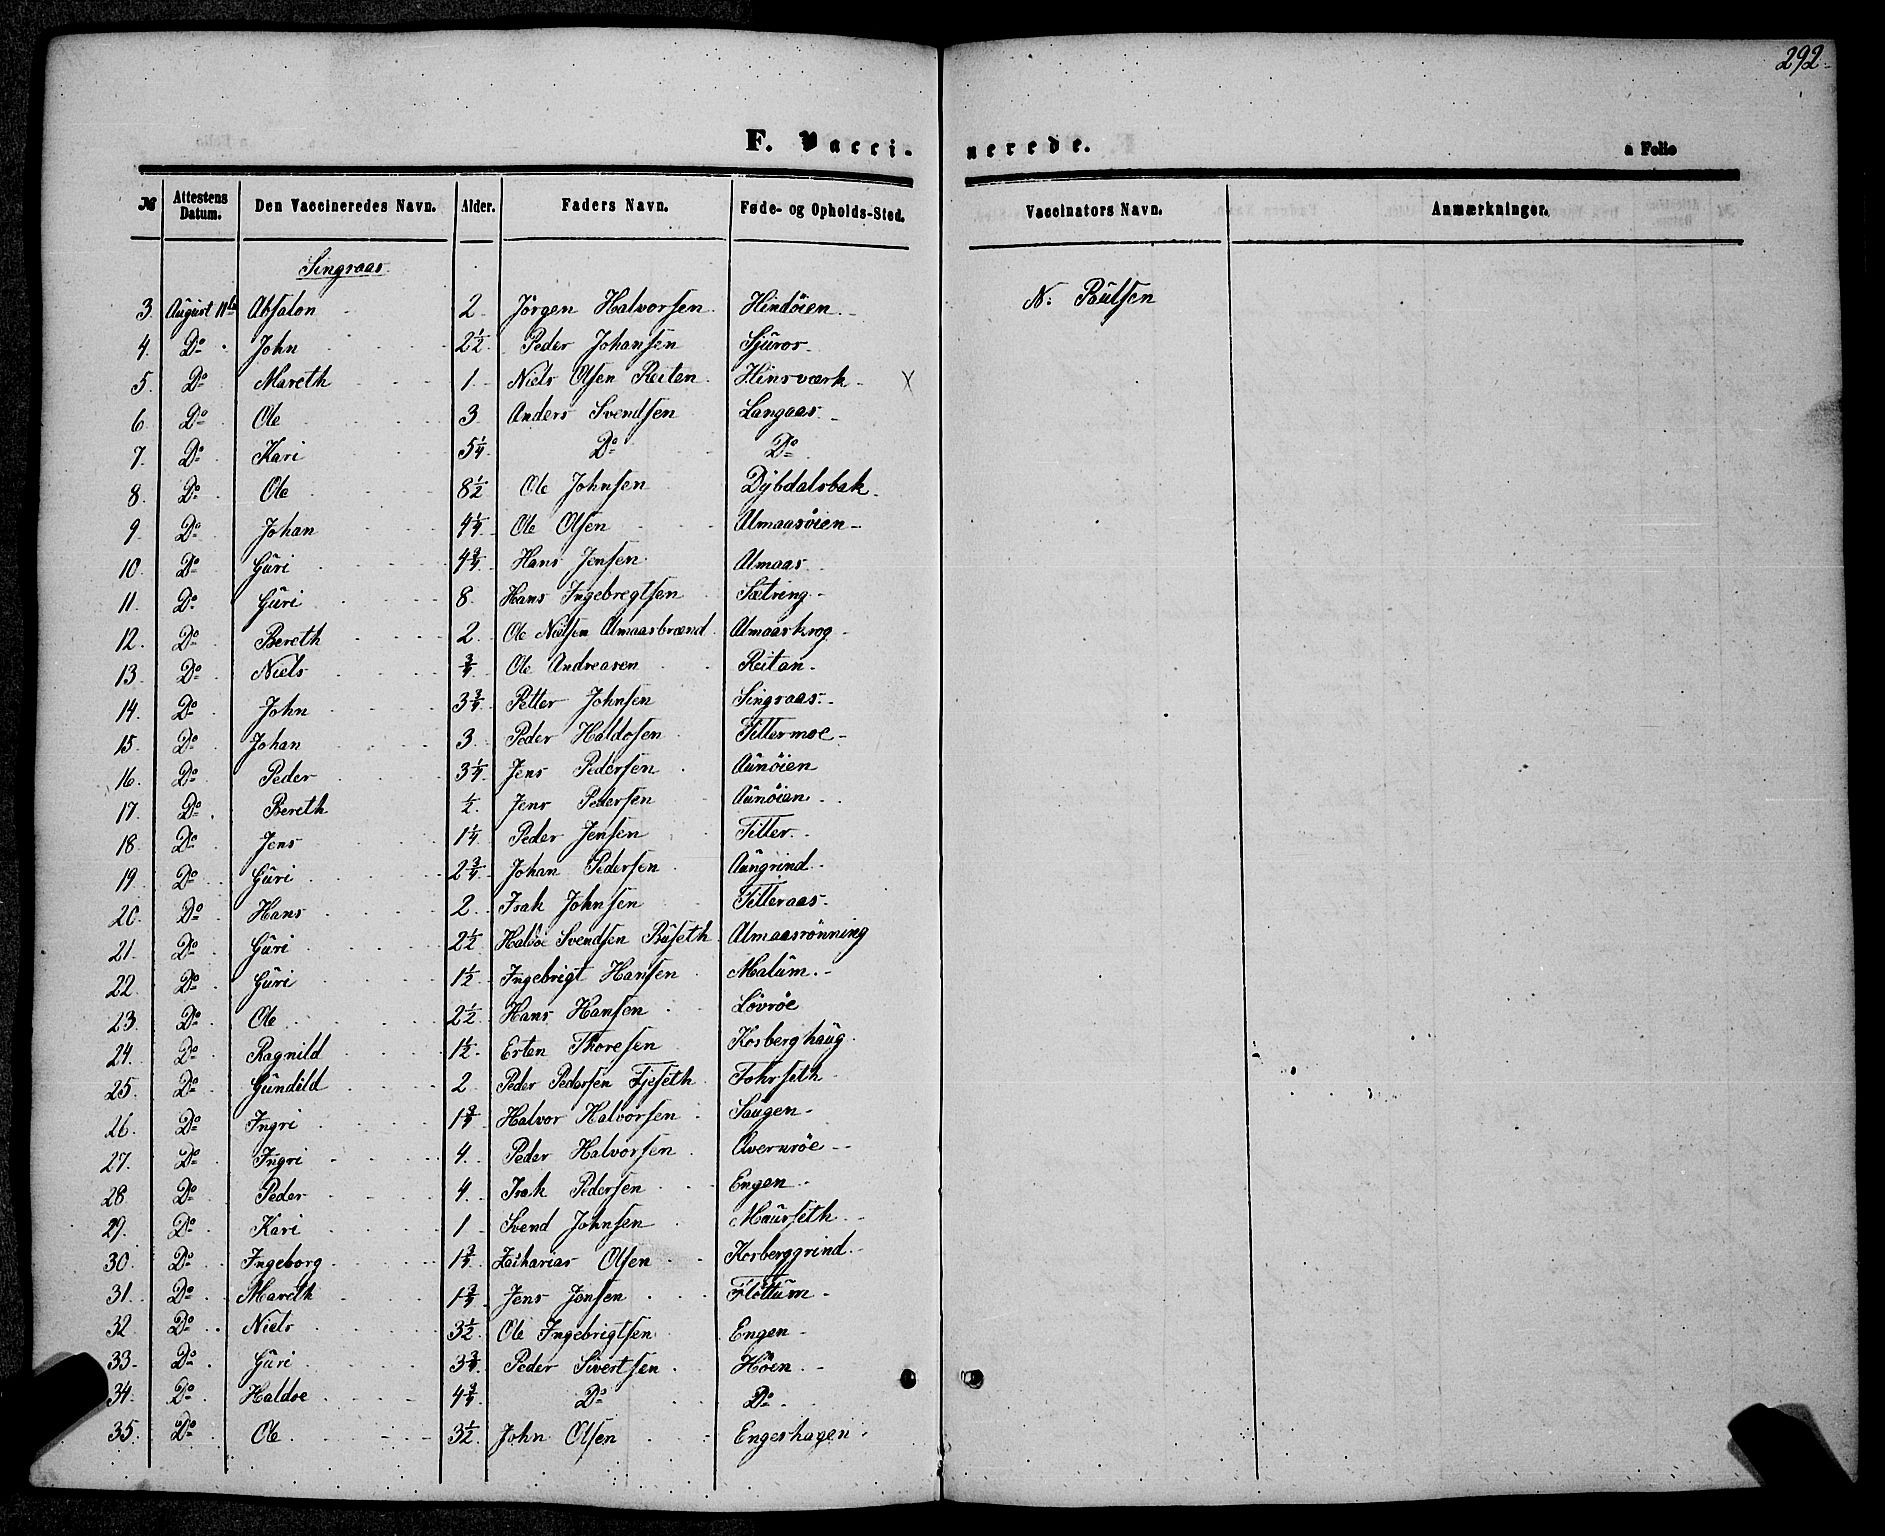 292.
F. Vaccinerede.
a Folio
№ Attestens Datum. Den Vaccineredes Navn. Alder. Faders Navn. Føde- og Opholds-Sted. Vaccinators Navn. Anmærkninger.
Singsaas
3. August 11te Absalon 2 Jörgen Halvorsen Hindöien N: Poulsen
4. Do John 2½ Peder Johansen Sjüros
5. Do Mareth 1 Niels Olsen Reiten Hinsværk X
6. Do Ole 3 Anders Svendsen Langaas
7. Do Kari 5¼ Do Do
8. Do Ole 8½ Ole Johnsen Dybdalsbak
9. Do Johan 4¼ Ole Olsen Almaasöien
10. Do Güri 4¾ Hans Jensen Almaas
11. Do Güri 8 Hans Ingebregtsen Sætring
12. Do Bereth 2 Ole Nielsen Almaasbrænd Almaaskrog
13. Do Niels ¾ Ole Andreasen Reitan
14. Do John 3¾ Petter Johnsen Singsaas
15. Do Johan 3 Peder Haldosen Fillermoe
16. Do Peder 3¼ Jens Pedersen Aünöien
17. Do Bereth ½ Jens Pedersen Aünöien
18. Do Jens 1¼ Peder Jensen Filler
19. Do Güri 2¾ Johan Pedersen Aüngrind
20. Do Hans 2 Isak Johnsen Filleraas
21. Do Güri 2½ Haldoe Svendsen Büseth Almaasrönning
22. Do Güri 1½ Ingebrigt Hansen Malüm
23. Do Ole 2½ Hans Hansen Lövröe
24. Do Ragnild 1½ Esten Thoresen Kosberghaüg
25. Do Gündild 2 Peder Pedersen Fjeseth Fohrseth
26. Do Ingri 1¾ Halvor Halvorsen Saügen
27. Do Ingri 4 Peder Halvorsen Qvernröe
28 Do Peder 4 Isak Pedersen Engen
29. Do Kari 1 Svend Johnsen Maürseth
30. Do Ingeborg 1¾ Zacharias Olsen Kosberggrind
31. Do Mareth 1¾ Jens Jonsen Flöttüm
32 Do Niels 3½ Ole Ingebrigtsen Engen
33. Do Güri 3¾ Peder Sivertsen Höen
34. Do Haldoe 4¾ Do Do
35. Do Ole 3½ John Olsen Engeshagen